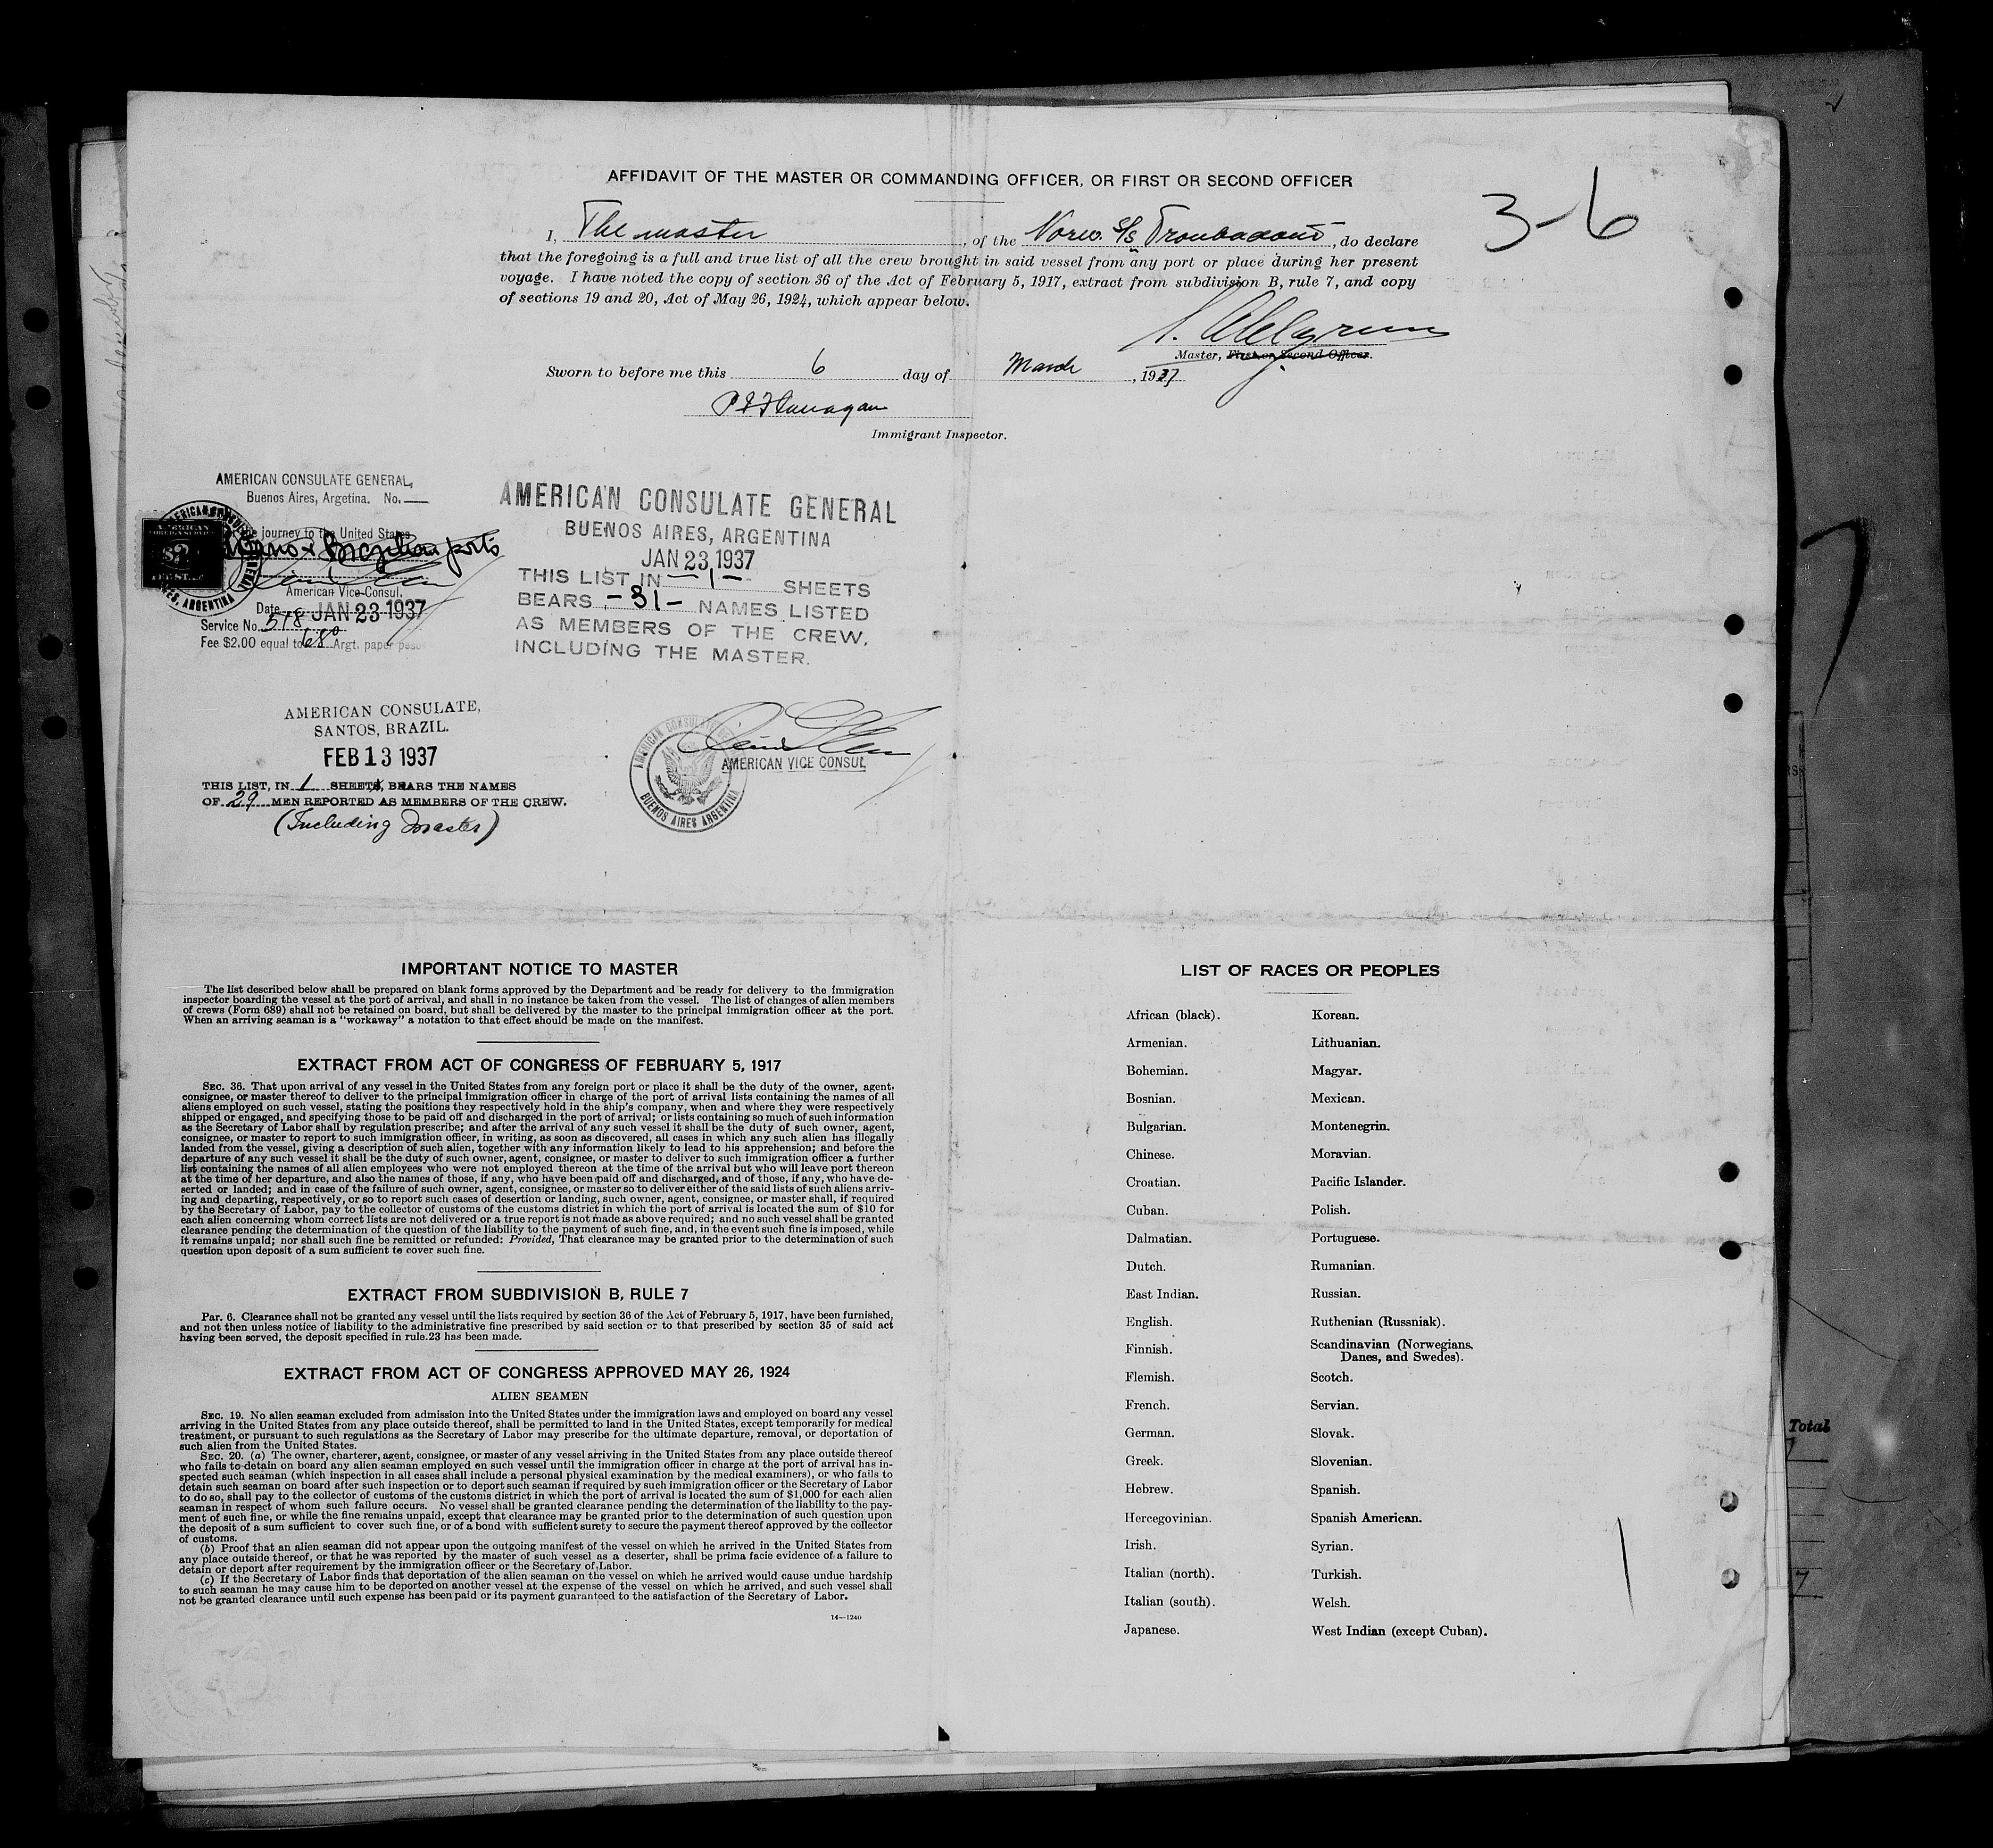 AFFIDAVIT OF THE MASTER OR COMMANDING OFFICER, OR FIRST OR SECOND OFFICER
3-6
I, The master, of the Norw. S/S Troubadour, do declare
that the foregoing is a full and true list of all the crew brought in said vessel from any port or place during her present
voyage. I have noted the copy of section 36 of the Act of February 5, 1917, extract from subdivision B, rule 7, and copy
of sections 19 and 20, Act of May 26, 1924, which appear below.
Master, First or Second Officer.
Sworn to before me this 6 day of March, 1937
Flanagan
Immigrant Inspector.
AMERICAN CONSULATE GENERAL,
Buenos Aires, Argetina. No.
journey to the United States
& Brazilian ports
American Vice-Consul.
Date JAN 23 1937
Service No. 518
Fee $2.00 equal to 6.80 Argt. paper pesos
AMERICAN CONSULATE GENERAL
BUENOS AIRES, ARGENTINA
JAN 23 1937
THIS LIST IN -1- SHEETS
BEARS -31- NAMES LISTED
AS MEMBERS OF THE CREW,
INCLUDING THE MASTER.
AMERICAN VICE CONSUL
AMERICAN CONSULATE GENERAL
BUENOS AIRES ARGENTINA
AMERICAN CONSULATE,
SANTOS, BRAZIL.
FEB 13 1937
THIS LIST, IN 1 SHEETS, BEARS THE NAMES
OF 29 MEN REPORTED AS MEMBERS OF THE CREW.
(Including Master)
IMPORTANT NOTICE TO MASTER
The list described below shall be prepared on blank forms approved by the Department and be ready for delivery to the immigration
inspector boarding the vessel at the port of arrival, and shall in no instance be taken from the vessel. The list of changes of alien members
of crews (Form 689) shall not be retained on board, but shall be delivered by the master to the principal immigration officer at the port.
When an arriving seaman is a "workaway" a notation to that effect should be made on the manifest.
EXTRACT FROM ACT OF CONGRESS OF FEBRUARY 5, 1917
SEC. 36. That upon arrival of any vessel in the United States from any foreign port or place it shall be the duty of the owner, agent,
consignee, or master thereof to deliver to the principal immigration officer in charge of the port of arrival lists containing the names of all
aliens employed on such vessel, stating the positions they respectively hold in the ship's company, when and where they were respectively
shipped or engaged, and specifying those to be paid off and discharged in the port of arrival; or lists containing so much of such information
as the Secretary of Labor shall by regulation prescribe; and after the arrival of any such vessel it shall be the duty of such owner, agent,
consignee, or master to report to such immigration officer, in writing, as soon as discovered, all cases in which any such alien has illegally
landed from the vessel, giving a description of such alien, together with any information likely to lead to his apprehension; and before the
departure of any such vessel it shall be the duty of such owner, agent, consignee, or master to deliver to such immigration officer a further
list containing the names of all alien employees who were not employed thereon at the time of the arrival but who will leave port thereon
at the time of her departure, and also the names of those, if any, who have been paid off and discharged, and of those, if any, who have de-
serted or landed; and in case of the failure of such owner, agent, consignee, or master so to deliver either of the said lists of such aliens arriv-
ing and departing, respectively, or so to report such cases of desertion or landing, such owner, agent, consignee, or master shall, if required
by the Secretary of Labor, pay to the collector of customs of the customs district in which the port of arrival is located the sum of $10 for
each alien concerning whom correct lists are not delivered or a true report is not made as above required; and no such vessel shall be granted
clearance pending the determination of the question of the liability to the payment of such fine, and, in the event such fine is imposed, while
it remains unpaid; nor shall such fine be remitted or refunded: Provided, That clearance may be granted prior to the determination of such
question upon deposit of a sum sufficient to cover such fine.
EXTRACT FROM SUBDIVISION B, RULE 7
Par. 6. Clearance shall not be granted any vessel until the lists required by section 36 of the Act of February 5, 1917, have been furnished,
and not then unless notice of liability to the administrative fine prescribed by said section or to that prescribed by section 35 of said act
having been served, the deposit specified in rule 23 has been made.
EXTRACT FROM ACT OF CONGRESS APPROVED MAY 26, 1924
ALIEN SEAMEN
SEC. 19. No alien seaman excluded from admission into the United States under the immigration laws and employed on board any vessel
arriving in the United States from any place outside thereof, shall be permitted to land in the United States, except temporarily for medical
treatment, or pursuant to such regulations as the Secretary of Labor may prescribe for the ultimate departure, removal, or deportation of
such alien from the United States.
SEC. 20. (a) The owner, charterer, agent, consignee, or master of any vessel arriving in the United States from any place outside thereof
who fails to detain on board any alien seaman employed on such vessel until the immigration officer in charge at the port of arrival has in-
spected such seaman (which inspection in all cases shall include a personal physical examination by the medical examiners), or who fails to
detain such seaman on board after such inspection or to deport such seaman if required by such immigration officer or the Secretary of Labor
to do so, shall pay to the collector of customs of the customs district in which the port of arrival is located the sum of $1,000 for each alien
seaman in respect of whom such failure occurs. No vessel shall be granted clearance pending the determination of the liability to the pay-
ment of such fine, or while the fine remains unpaid, except that clearance may be granted prior to the determination of such question upon
the deposit of a sum sufficient to cover such fine, or of a bond with sufficient surety to secure the payment thereof approved by the collector
of customs.
(b) Proof that an alien seaman did not appear upon the outgoing manifest of the vessel on which he arrived in the United States from
any place outside thereof, or that he was reported by the master of such vessel as a deserter, shall be prima facie evidence of a failure to
detain or deport after requirement by the immigration officer or the Secretary of Labor.
(c) If the Secretary of Labor finds that deportation of the alien seaman on the vessel on which he arrived would cause undue hardship
to such seaman he may cause him to be deported on another vessel at the expense of the vessel on which he arrived, and such vessel shall
not be granted clearance until such expense has been paid or its payment guaranteed to the satisfaction of the Secretary of Labor.
14—1240
LIST OF RACES OR PEOPLES
African (black).
Armenian.
Bohemian.
Bosnian.
Bulgarian.
Chinese.
Croatian.
Cuban.
Dalmatian.
Dutch.
East Indian.
English.
Finnish.
Flemish.
French.
German.
Greek.
Hebrew.
Hercegovinian.
Irish.
Italian (north).
Italian (south).
Japanese.
Korean.
Lithuanian.
Magyar.
Mexican.
Montenegrin.
Moravian.
Pacific Islander.
Polish.
Portuguese.
Rumanian.
Russian.
Ruthenian (Russniak).
Scandinavian (Norwegians,
Danes, and Swedes).
Scotch.
Servian.
Slovak.
Slovenian.
Spanish.
Spanish American.
Syrian.
Turkish.
Welsh.
West Indian (except Cuban).
Total